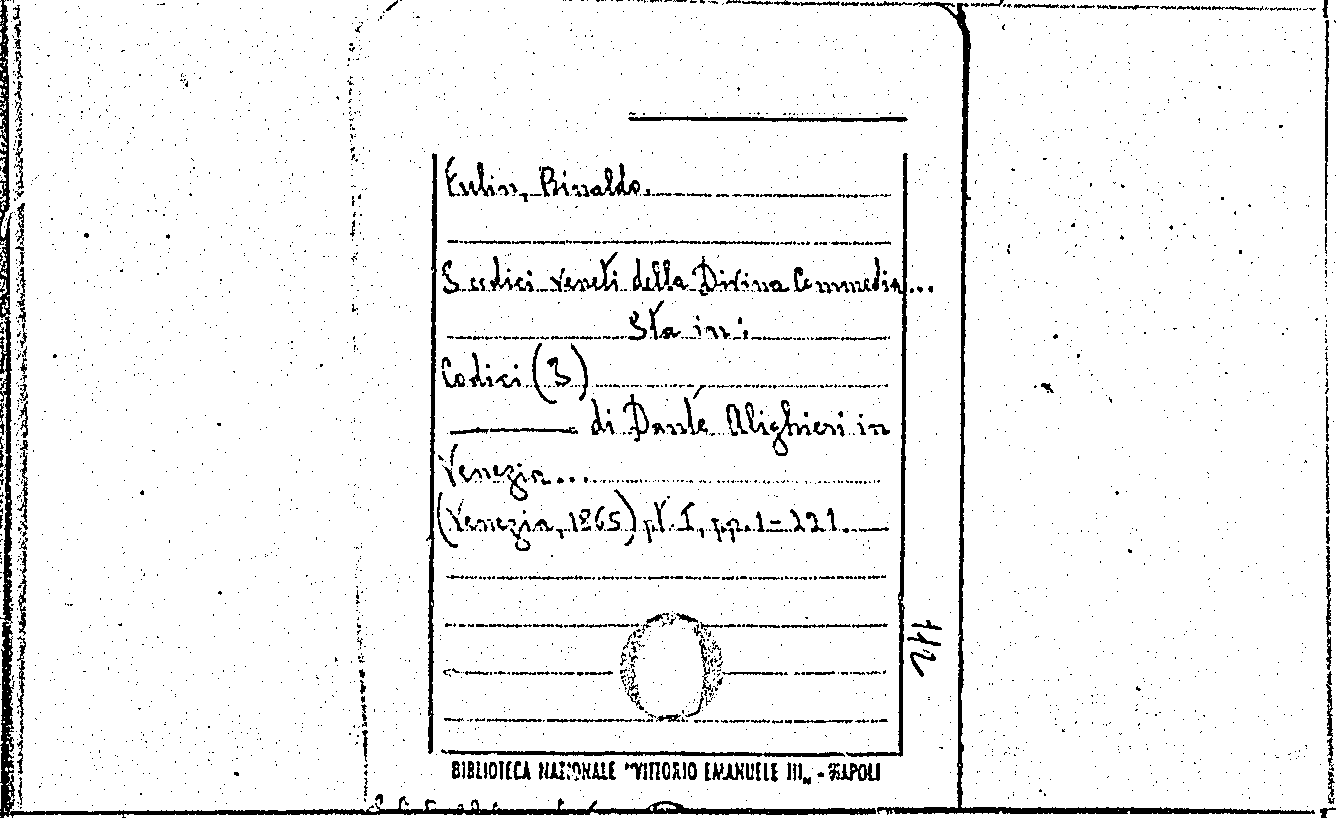 Fulin, Rinaldo.
I codici veneti della Divina Commedia...
Sta in:
Codici (I)
di Dante Alighieri in
Venezia...
(Venezia, 1865) pt. I, pp. 1-221.
112
BIBLIOTECA NAZIONALE "VITTORIO EMANUELE III„ - NAPOLI